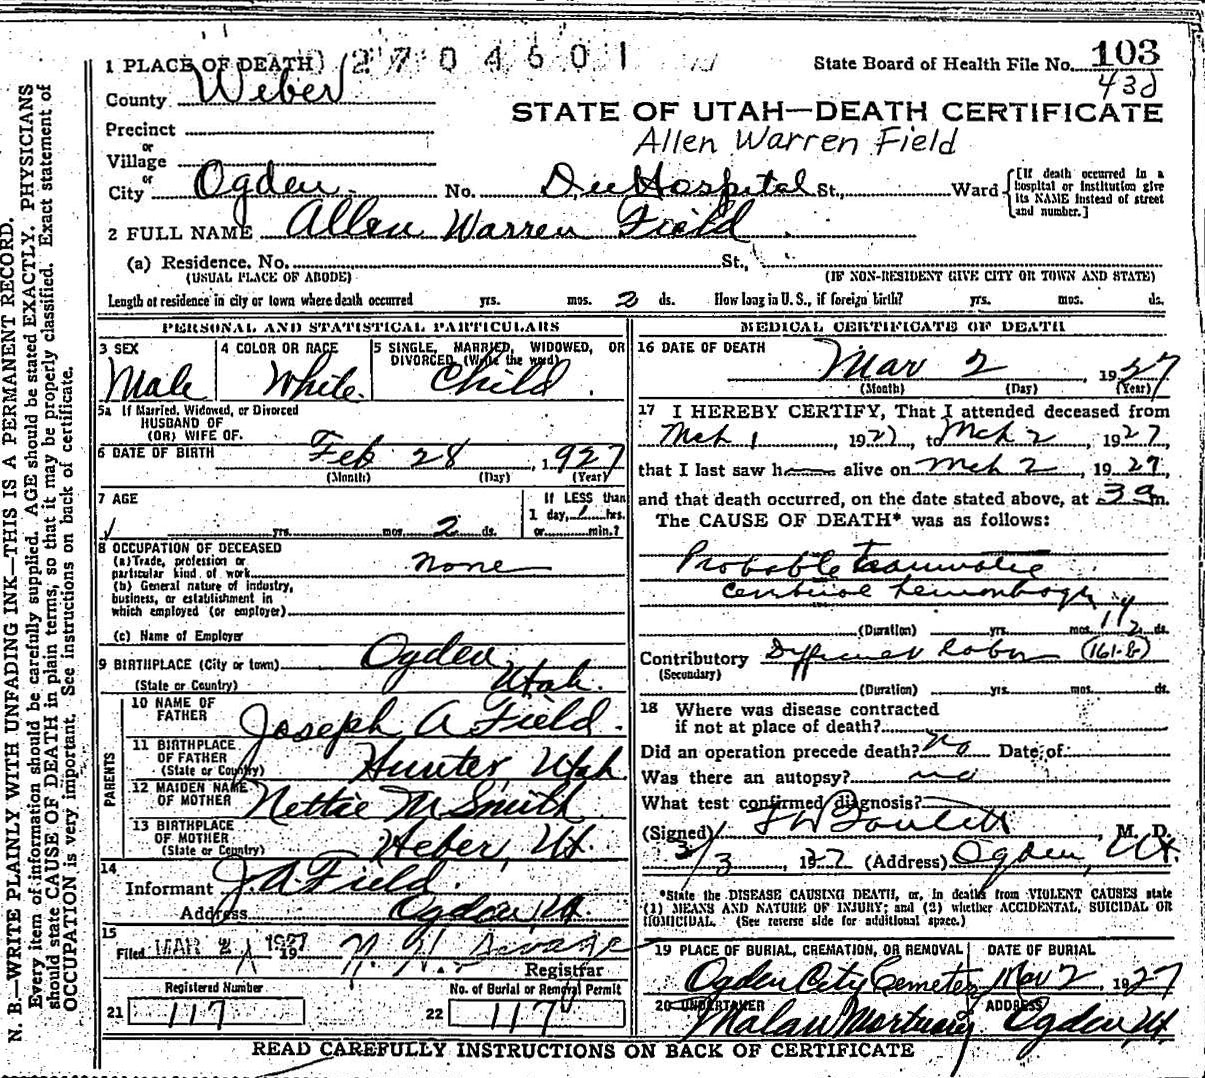 N. B.—WRITE PLAINLY WITH UNFADING INK—THIS IS A PERMANENT RECORD.
Every item of information should be carefully supplied. AGE should be stated EXACTLY. PHYSICIANS
should state CAUSE OF DEATH in plain terms, so that it may be properly classified. Exact statement of
OCCUPATION is very important. See instructions on back of certificate.
2704601
State Board of Health File No. 103
432
1 PLACE OF DEATH
County Weber
STATE OF UTAH—DEATH CERTIFICATE
Allen Warren Field
Precinct
or
Village
or
City Ogden No. Dee Hospital St., Ward
[If death occurred in a
hospital or institution give
its NAME instead of street
and number.]
2 FULL NAME Allen Warren Field
(a) Residence. No. St.,
(USUAL PLACE OF ABODE) (IF NON-RESIDENT GIVE CITY OR TOWN AND STATE)
Length of residence in city or town where death occurred yrs. mos. 2 ds. How long in U. S., if foreign birth? yrs. mos. ds.
PERSONAL AND STATISTICAL PARTICULARS
3 SEX
Male
4 COLOR OR RACE
White
5 SINGLE, MARRIED, WIDOWED, OR
DIVORCED, (Write the word)
Child
5a If Married, Widowed, or Divorced
HUSBAND OF
(OR) WIFE OF
6 DATE OF BIRTH Feb 28, 1927
(Month) (Day) (Year)
7 AGE
yrs. mos. 2 ds.
If LESS than
1 day, hrs.
or min.?
8 OCCUPATION OF DECEASED
(a) Trade, profession or
particular kind of work none
(b) General nature of industry,
business, or establishment in
which employed (or employer)
(c) Name of Employer
9 BIRTHPLACE (City or town) Ogden
(State or Country) Utah.
PARENTS
10 NAME OF
FATHER Joseph A Field.
11 BIRTHPLACE
OF FATHER
(State or Country) Hunter, Utah
12 MAIDEN NAME
OF MOTHER Nettie M Smith
13 BIRTHPLACE
OF MOTHER
(State or Country) Heber, Ut.
14
Informant J. A. Field.
Address Ogden, Ut.
15
Filed MAR 2 1927 19
Registrar
Registered Number
21 117
No. of Burial or Removal Permit
22 117
MEDICAL CERTIFICATE OF DEATH
16 DATE OF DEATH
Mar 2, 1927
(Month) (Day) (Year)
17 I HEREBY CERTIFY, That I attended deceased from
Mch 1, 1927, to Mch 2, 1927,
that I last saw h alive on Mch 2, 1927
and that death occurred, on the date stated above, at 3 a m.
The CAUSE OF DEATH* was as follows:
Probable traumatic
cerebral hemorrhage
(Duration) yrs. mos. 2 ds.
Contributory Difficult labor (161-B)
(Secondary)
(Duration) yrs. mos. ds.
18 Where was disease contracted
if not at place of death?
Did an operation precede death? No Date of:
Was there an autopsy? no
What test confirmed diagnosis?
(Signed) , M. D.
3/3, 1927 (Address) Ogden, Ut.
*State the DISEASE CAUSING DEATH, or, in deaths from VIOLENT CAUSES state
(1) MEANS AND NATURE OF INJURY; and (2) whether ACCIDENTAL, SUICIDAL OR
HOMICIDAL. (See reverse side for additional space.)
19 PLACE OF BURIAL, CREMATION, OR REMOVAL
Ogden City Cemetery
DATE OF BURIAL
Mar 2, 1927
20 UNDERTAKER
Malan Mortuary
ADDRESS
Ogden, Ut
READ CAREFULLY INSTRUCTIONS ON BACK OF CERTIFICATE